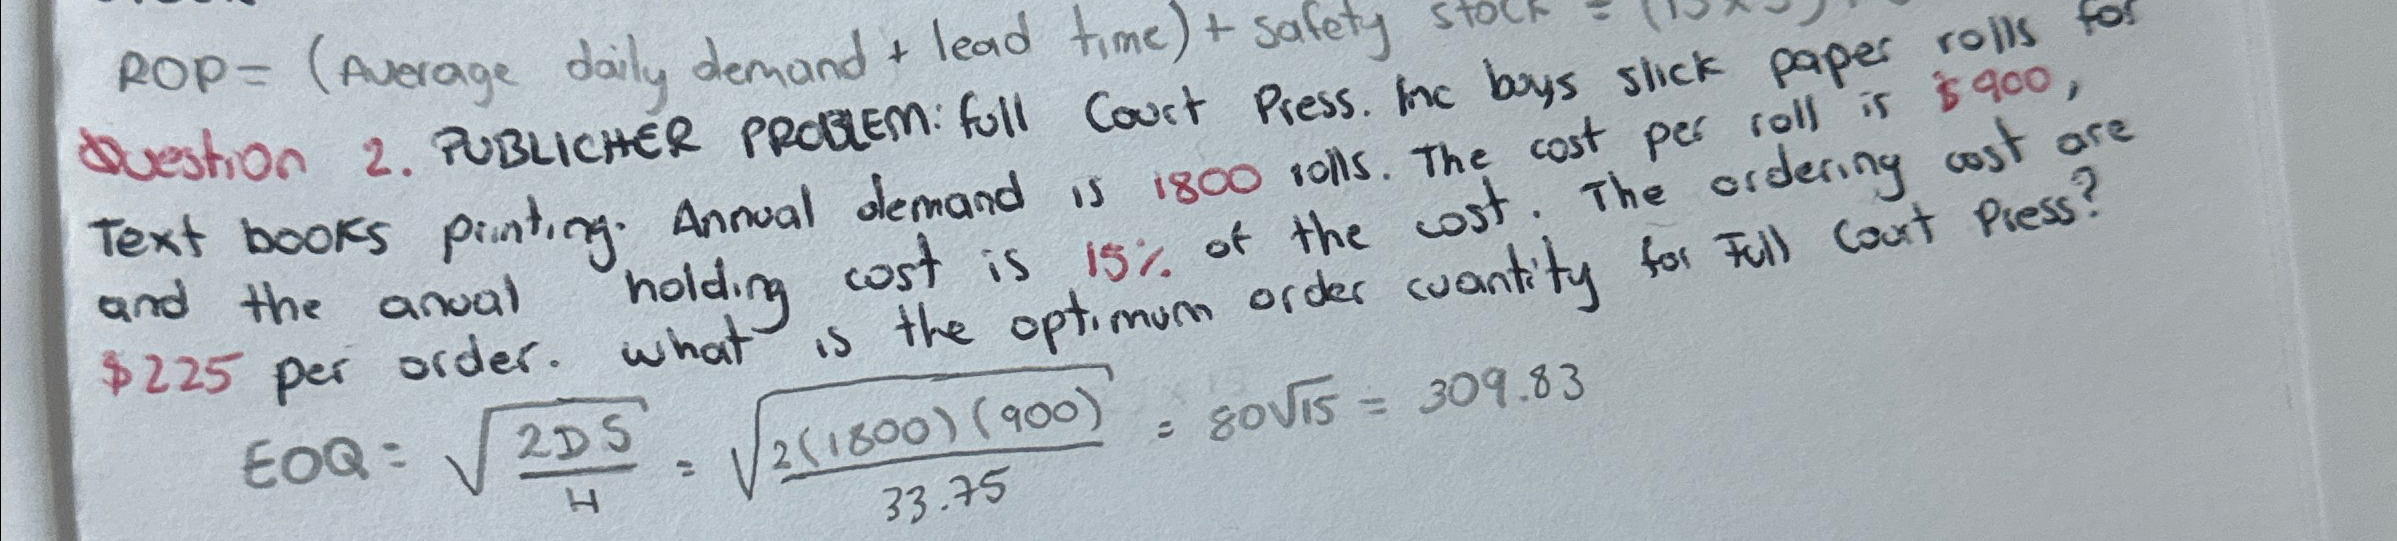 ROP= (Average daily demand + lead time) + safety stock = (15 x 5)
Question 2. PUBLICHER PROBLEM: full Court Press. Inc buys slick paper rolls for
Text books printing. Annual demand is 1800 rolls. The cost per roll is $900,
and the anual holding cost is 15% of the cost. The ordering cost are
$225 per order. what is the optimum order cuantity for Full Court Press?
EOQ = √2DS/H = √2(1800)(900)/33.75 = 80√15 = 309.83